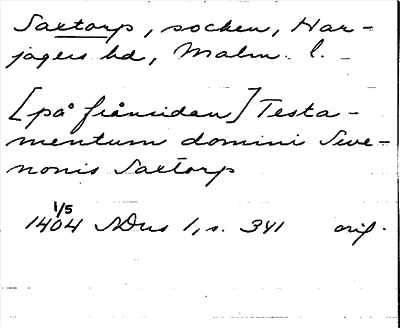 Saxtorp, socken, Har-
jagers hd, Malm. l.
[på frånsidan] Testa-
mentum domini Swe-
nonis Saxtorp
1/5
1404 NDns 1, s. 341 orig.